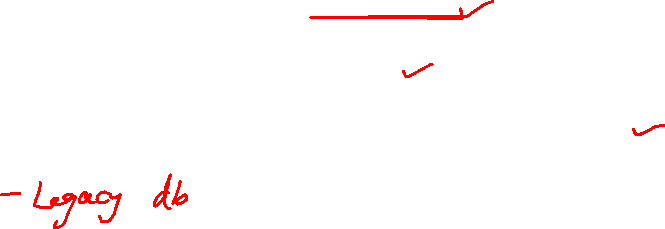 - Legacy db